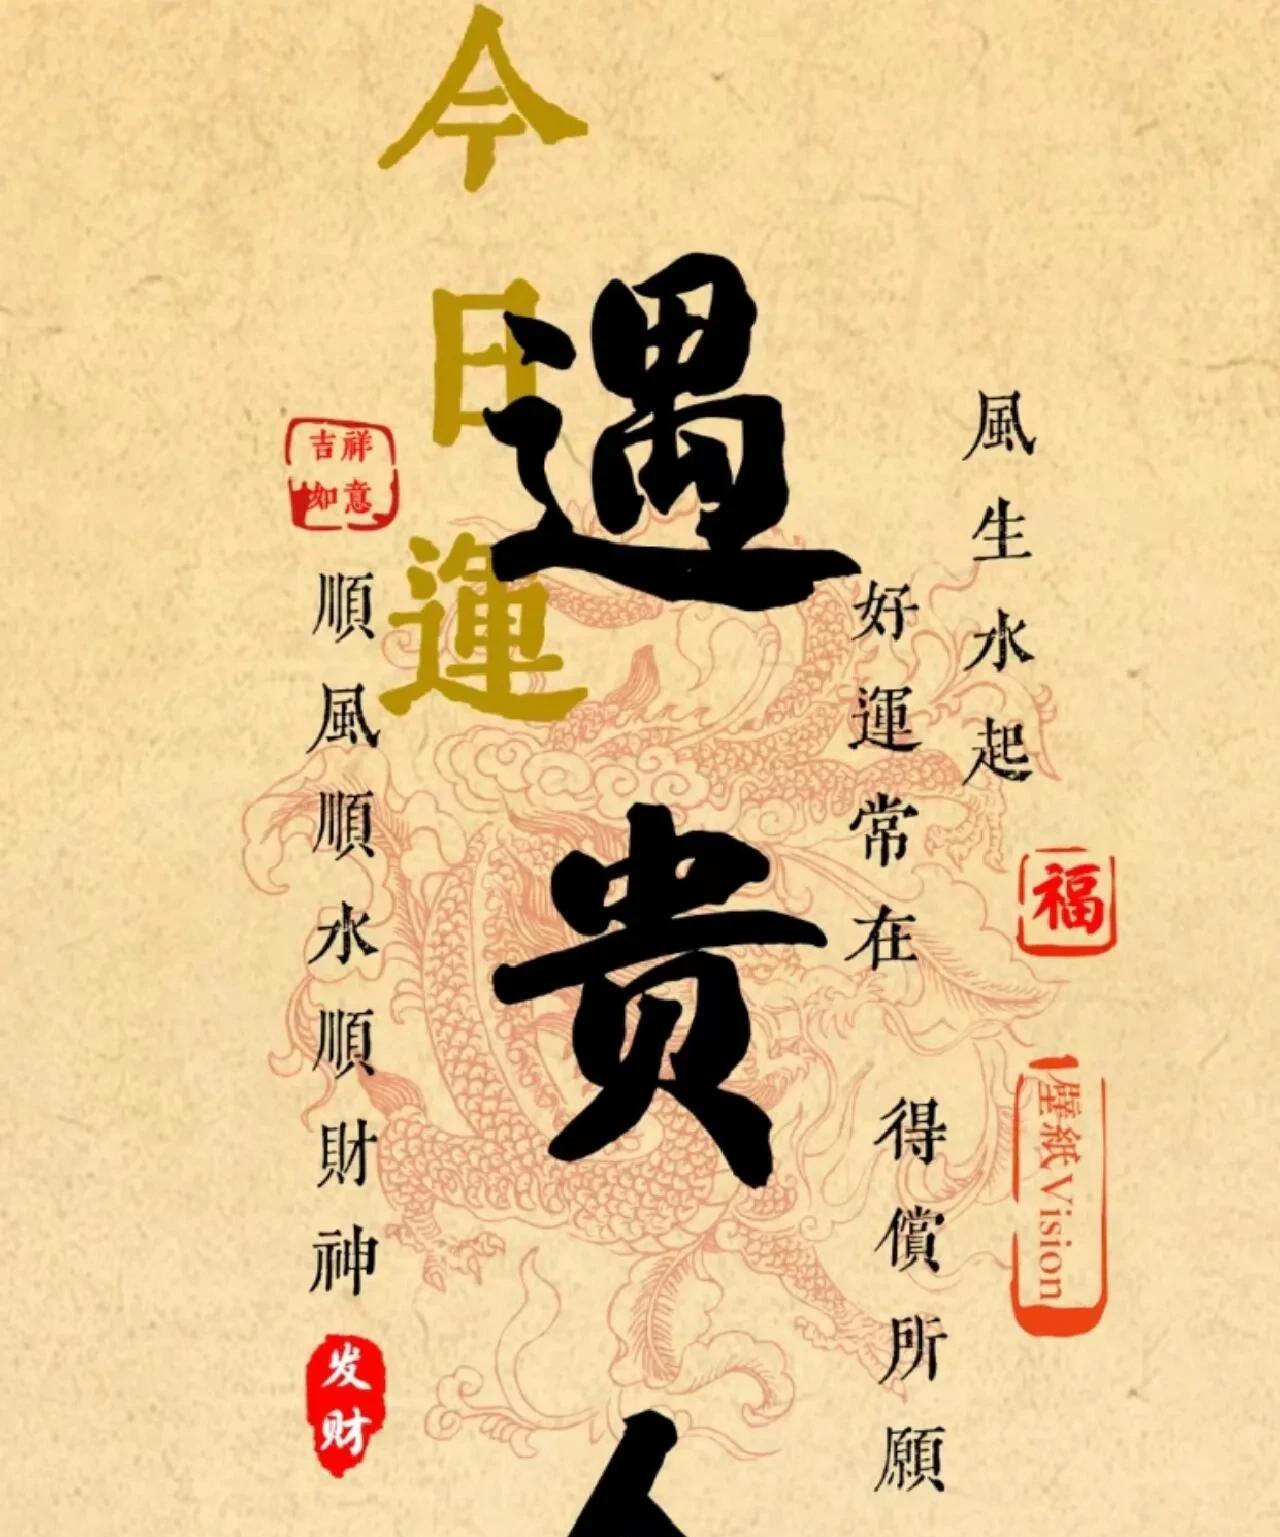 今日運
遇貴人
風生水起
好運常在
得償所願
福
壁紙Vision
吉祥
如意
順風順水順財神
发财